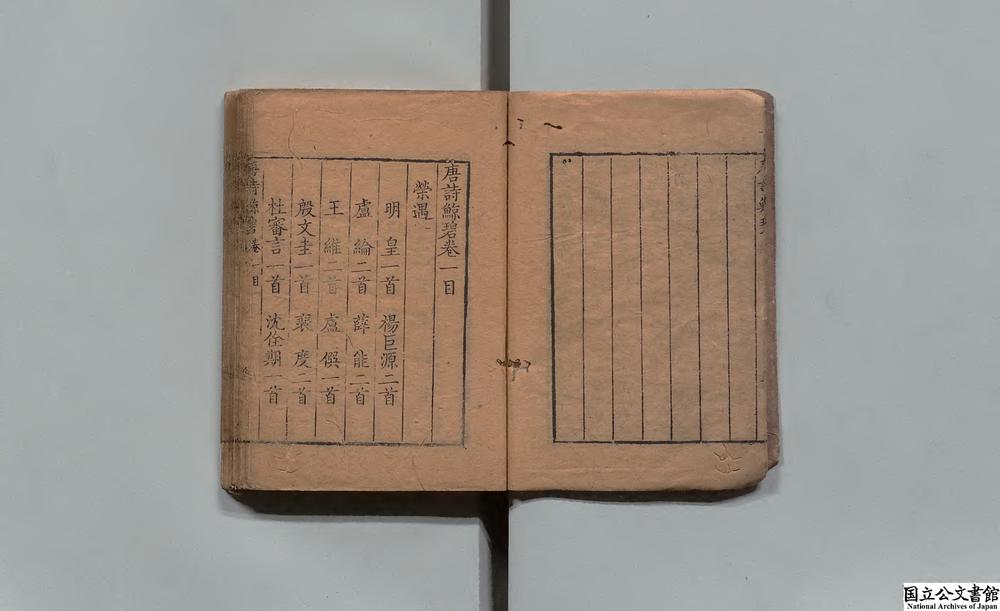 唐詩鯨碧卷一目
榮遇
明皇一首 楊巨源二首
盧綸二首 薛能二首
王維二首 盧僎一首
殷文圭一首 裴度二首
杜審言一首 沈佺期一首
唐詩鯨碧卷一目
国立公文書館
National Archives of Japan